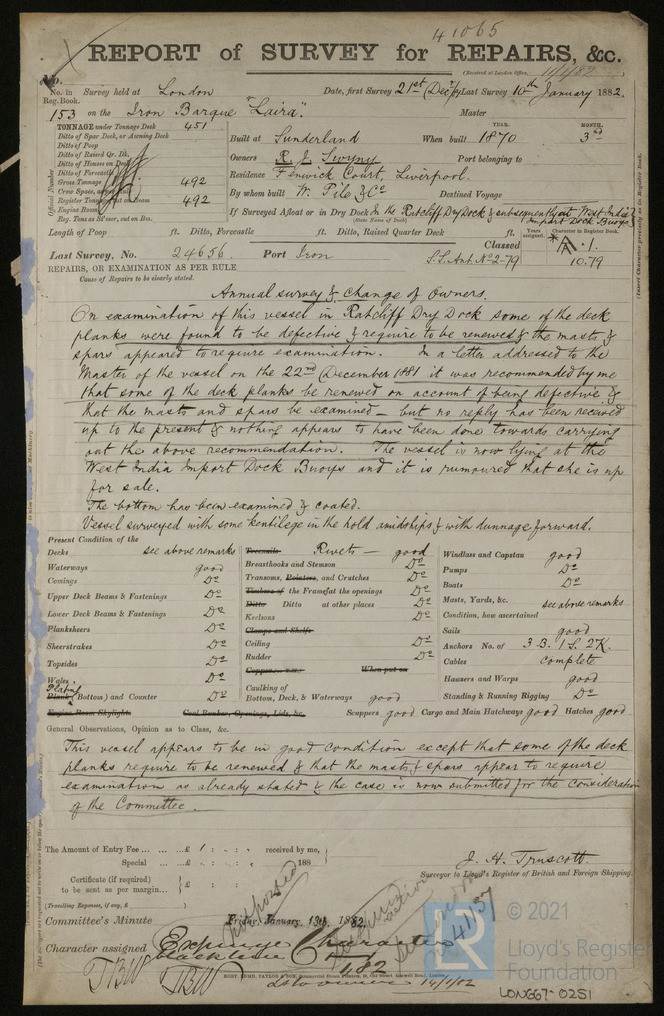 41065
REPORT of SURVEY for REPAIRS, &c.
(Received at London Office, 11/1/82)
No.
No. in Survey held at London Date, first Survey 21st Decr/81 Last Survey 10th January 1882.
Reg. Book.
153 on the Iron Barque "Laira". Master
TONNAGE under Tonnage Deck 451
Ditto of Spar Deck, or Awning Deck
Ditto of Poop
Ditto of Raised Qr. Dk.
Ditto of Houses on Deck
Ditto of Forecastle
Gross Tonnage 492
Crew Space,
Register Tonnage 492
Engine Room
Reg. Tons as
Official Number
YEAR. MONTH.
Built at Sunderland When built 1870 3rd
Owners R. J. Swyny Port belonging to
Residence Fenwick Court, Liverpool.
By whom built W. Pile & Co Destined Voyage
If Surveyed Afloat or in Dry Dock In the Ratcliff Dry Dock & subsequently at West India
(State Name of Dock) Import Dock Buoys
Length of Poop ft. Ditto, Forecastle ft. Ditto, Raised Quarter Deck ft.
Years assigned. Character in Register Book.
Classed A. 1.
Last Survey, No. 24656. Port Iron S.S. Ant. No 2-79 10.79
REPAIRS, OR EXAMINATION AS PER RULE
Cause of Repairs to be clearly stated.
Annual survey & change of Owners.
On examination of this vessel in Ratcliff Dry Dock some of the deck
planks were found to be defective & require to be renewed & the masts &
spars appeared to require examination. In a letter addressed to the
Master of the vessel on the 22nd December 1881 it was recommended by me
that some of the deck planks be renewed on account of being defective &
that the masts and spars be examined - but no reply has been received
up to the present & nothing appears to have been done towards carrying
out the above recommendation. The vessel is now lying at the
West India Import Dock Buoys and it is rumoured that she is up
for sale.
The bottom has been examined & coated.
Vessel surveyed with some kentilege in the hold amidships & with dunnage forward.
Present Condition of the
Decks see above remarks
Waterways good
Comings Do
Upper Deck Beams & Fastenings Do
Lower Deck Beams & Fastenings Do
Planksheers Do
Sheerstrakes Do
Topsides Do
Wales Do
Plating
Plank (Bottom) and Counter Do
Engine Room Skylights Coal Bunker, Openings, Lids, &c.
Treenails Rivets - good
Breasthooks and Stemson Do
Transoms, Pointers, and Crutches Do
Timbers of the Frames at the openings Do
Ditto Ditto at other places Do
Keelsons Do
Clamps and Shelfs
Ceiling Do
Rudder Do
Copper When put on
Caulking of
Bottom, Deck, & Waterways good
Scuppers good Cargo and Main Hatchways good Hatches good
Windlass and Capstan good
Pumps Do
Boats Do
Masts, Yards, &c. see above remarks
Condition, how ascertained
Sails good
Anchors No. of 3 B. 1 S. 2 K.
Cables complete
Hawsers and Warps good
Standing & Running Rigging Do
General Observations, Opinion as to Class, &c.
This vessel appears to be in good condition except that some of the deck
planks require to be renewed & that the masts & spars appear to require
examination as already stated & the case is now submitted for the consideration
of the Committee.
The Amount of Entry Fee ... £ received by me,
Special ... £ 188
Certificate (if required)
to be sent as per margin... £
(Travelling Expenses, if any, £ )
J. H. Truscott.
Surveyor to Lloyd's Register of British and Foreign Shipping.
Committee's Minute Friday, January, 13th, 1882.
postponed
Character assigned Expunge Character
Black line
1/82
TBW TBW
41137
14/1/82
© 2021
Lloyd's Register
Foundation
LON667-0251